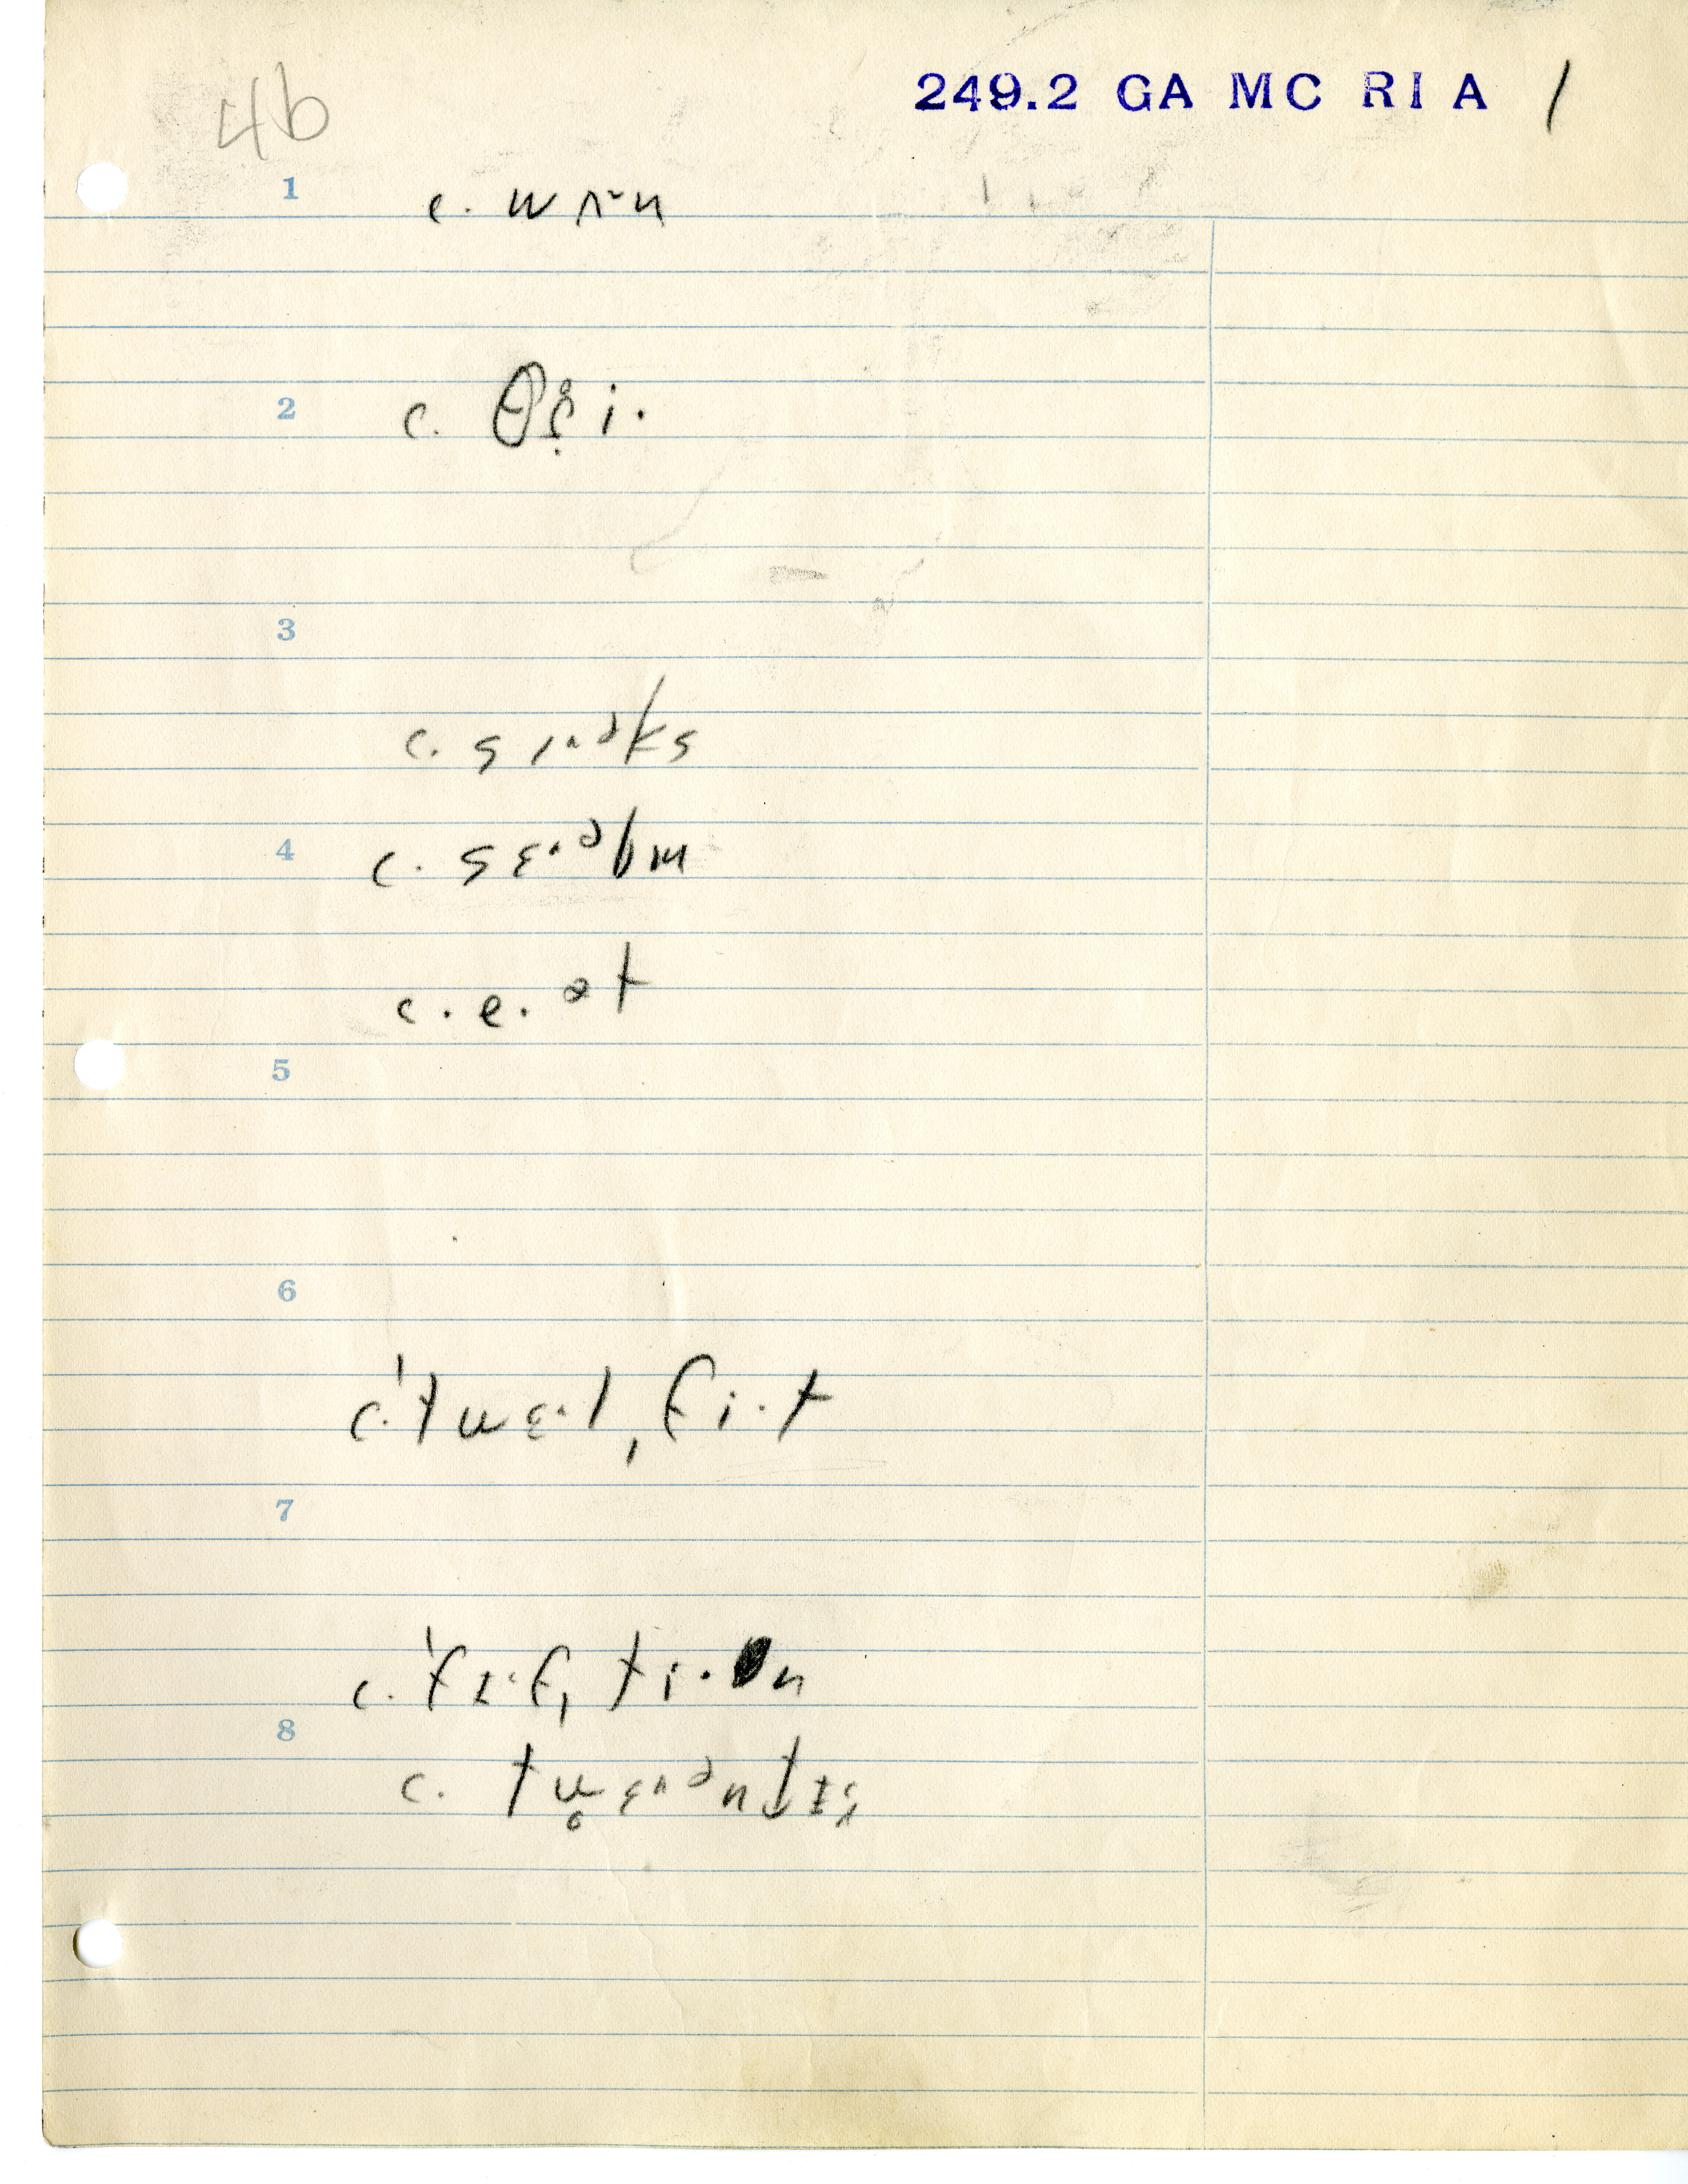 4b
249.2 GA MC RI A /
1 c. wʌˑn
2 c. θɹ̣i·
3
c. sɪᴧəks
4 c. sɛᴧəbm
c. e. ət
5
6
c. ˈtwɛ·lˌfi·t
7
c. ˈfɪ·fˌti·n
8
c. twɛᴧəntɪ